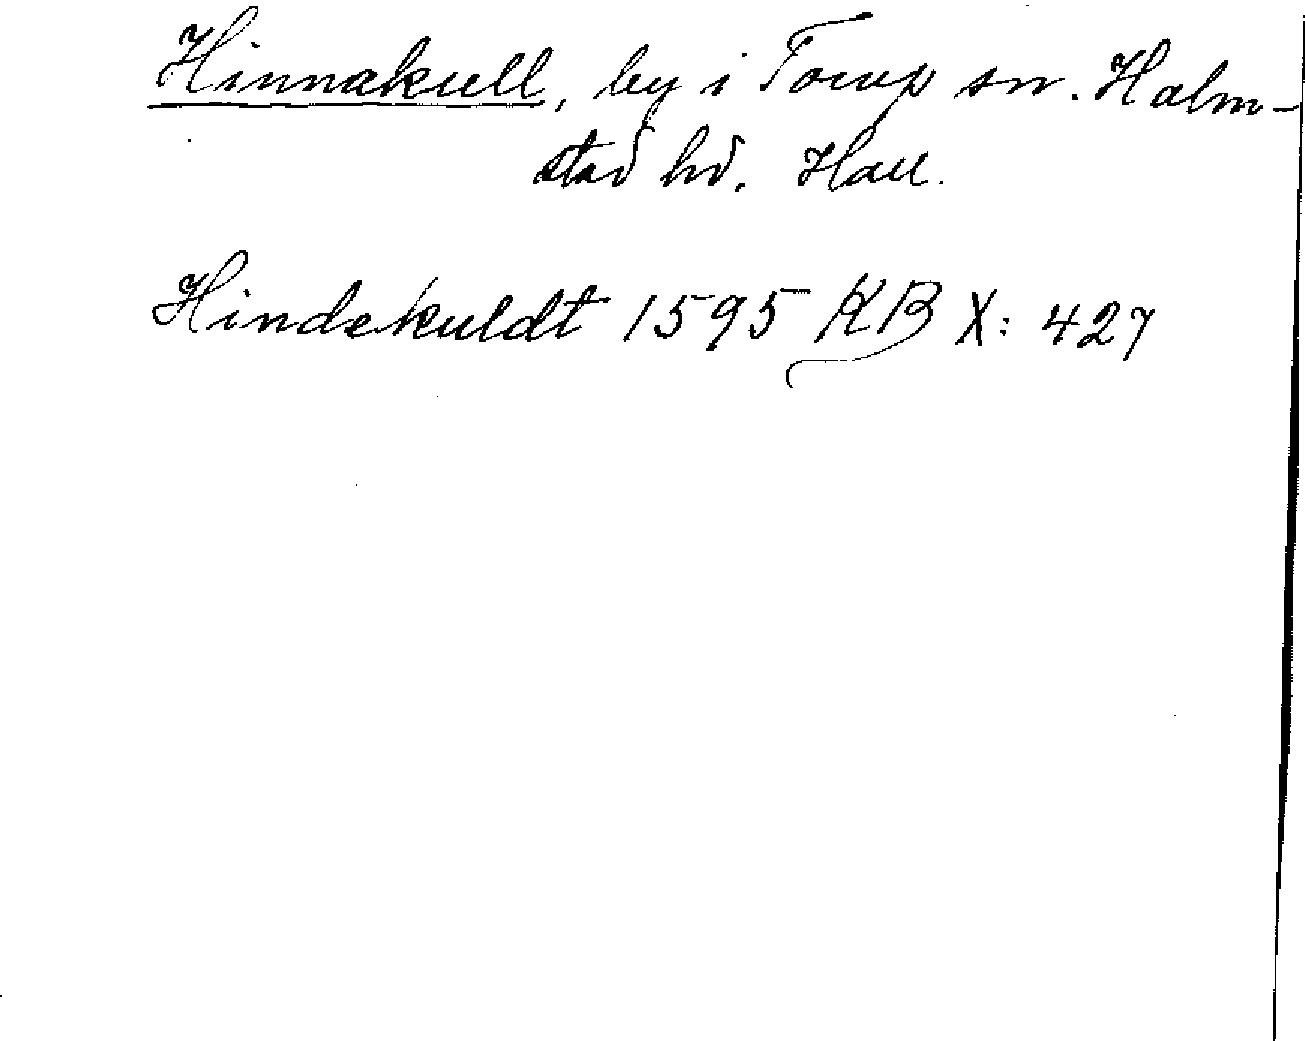 Hinnakull, by i Torup sn. Halm-
stad hd. Hall.
Hindekuldt 1595 KB X: 427